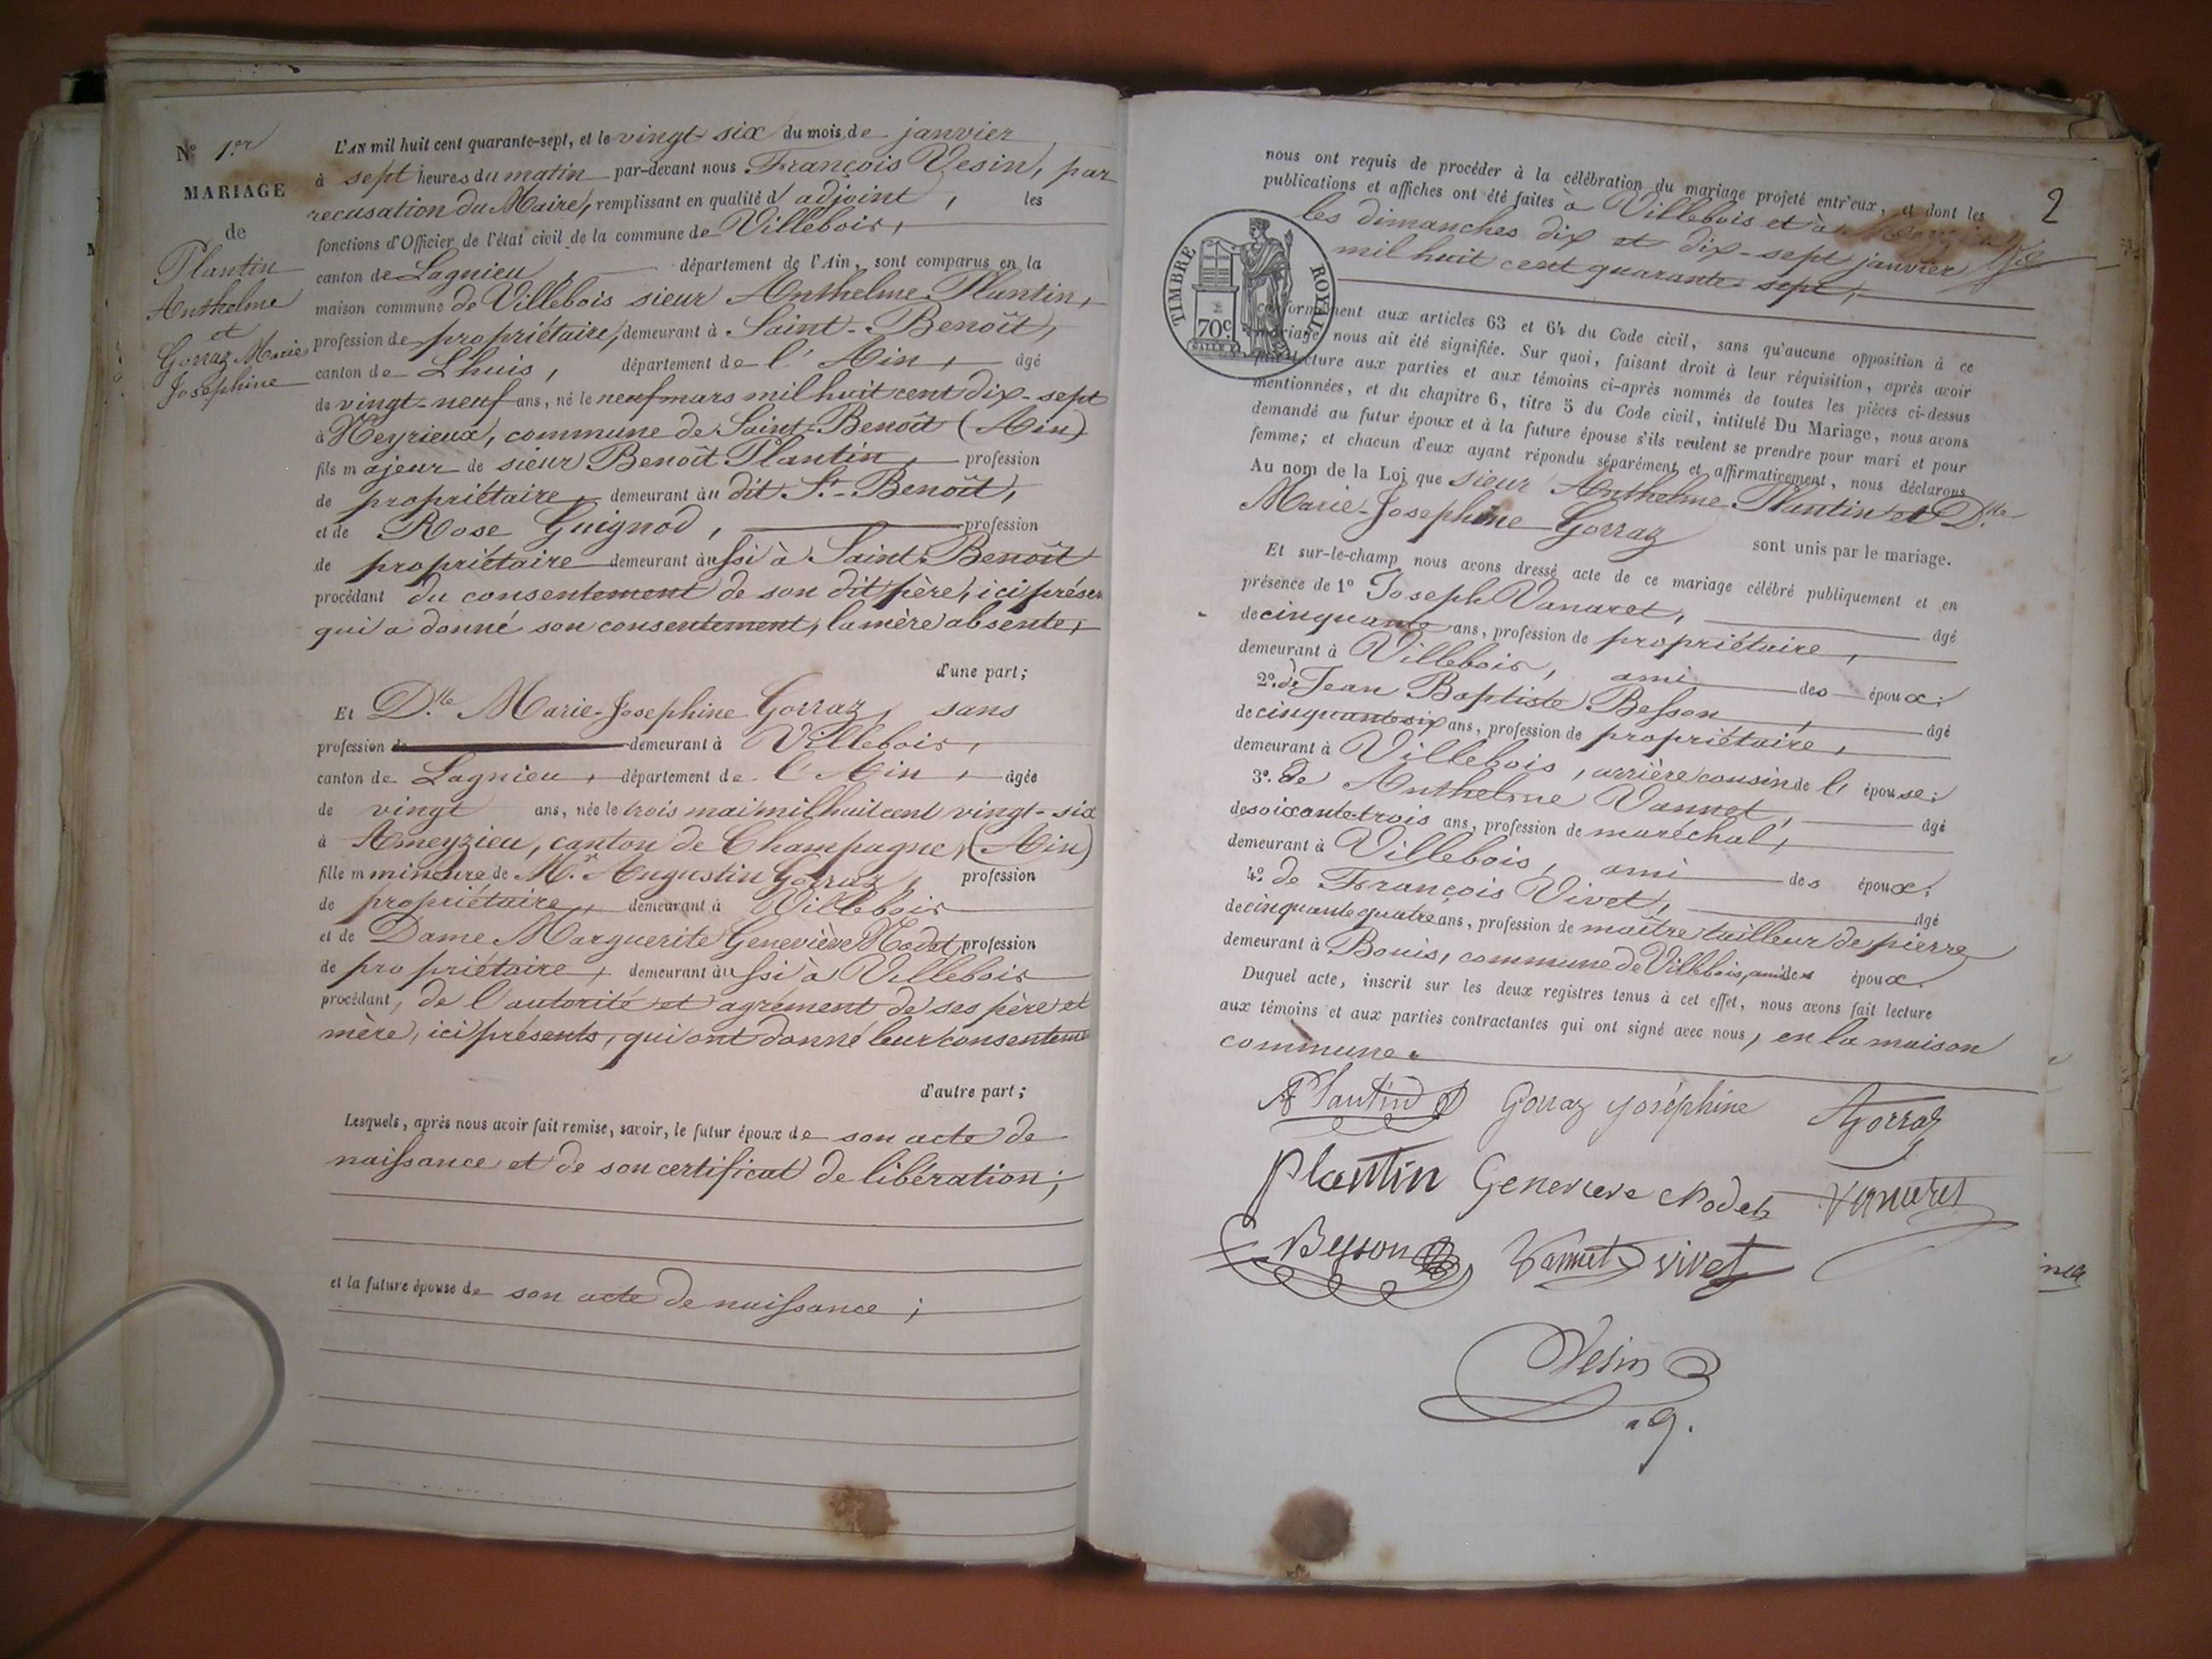 N° 1.er
MARIAGE
de
Plantin
Anthelme
et
Gorraz Marie
Josephine
L'AN mil huit cent quarante-sept, et le vingt-six du mois de janvier
à sept heures du matin par-devant nous François Vesin, par
recusation du Maire, remplissant en qualité d'adjoint, les
fonctions d'Officier de l'état civil de la commune de Villebois,
canton de Lagnieu, département de l'Ain, sont comparus en la
maison commune de Villebois sieur Anthelme Plantin,
profession de propriétaire, demeurant à Saint-Benoît,
canton de Lhuis, département de l'Ain, âgé
de vingt-neuf ans, né le neuf mars mil huit cent dix-sept
à Meyrieux, commune de Saint-Benoît (Ain)
fils majeur de sieur Benoît Plantin, profession
de propriétaire, demeurant au dit St-Benoît,
et de Rose Guignod, profession
de propriétaire demeurant aussi à Saint-Benoît
procédant du consentement de son dit père, ici présen
qui a donné son consentement, la mère absente,
d'une part;
Et D.lle Marie-Josephine Gorraz, sans
profession demeurant à Villebois,
canton de Lagnieu, département de l'Ain, âgée
de vingt ans, née le trois mai mil huit cent vingt-six
à Ameyzieu, canton de Champagne, (Ain)
fille mmineure de M.r Augustin Gorraz, profession
de propriétaire, demeurant à Villebois
et de Dame Marguerite Geneviève Nodet profession
de propriétaire, demeurant aussi à Villebois
procédant, de l'autorité et agrément de ses père et
mère, ici présents, qui ont donné leur consenteme
d'autre part;
Lesquels, après nous avoir fait remise, savoir, le futur époux de son acte de
naissance et de son certificat de libération;
et la future épouse de son acte de naissance;
2
nous ont requis de procéder à la célébration du mariage projeté entr'eux, et dont les
publications et affiches ont été faites à Villebois et à
les dimanches dix et dix-sept janvier
mil huit cent quarante-sept,
TIMBRE ROYAL
70c
conformément aux articles 63 et 64 du Code civil, sans qu'aucune opposition à ce
mariage nous ait été signifiée. Sur quoi, faisant droit à leur réquisition, après avoir
fait lecture aux parties et aux témoins ci-après nommés de toutes les pièces ci-dessus
mentionnées, et du chapitre 6, titre 5 du Code civil, intitulé Du Mariage, nous avons
demandé au futur époux et à la future épouse s'ils veulent se prendre pour mari et pour
femme; et chacun d'eux ayant répondu séparément et affirmativement, nous déclarons
Au nom de la Loi que sieur Anthelme Plantin et D.lle
Marie-Josephine Gorraz sont unis par le mariage.
Et sur-le-champ nous avons dressé acte de ce mariage célébré publiquement et en
présence de 1° Joseph Vanaret, âgé
de cinquante ans, profession de propriétaire,
demeurant à Villebois, ami des époux;
2° de Jean Baptiste Besson, âgé
de cinquante six ans, profession de propriétaire,
demeurant à Villebois, arrière cousin de l'épouse;
3° de Anthelme Vannet, âgé
de soixante trois ans, profession de maréchal,
demeurant à Villebois, ami des époux;
4° de François Vivet, âgé
de cinquante quatre ans, profession de maître tailleur de pierre
demeurant à Bouis, commune de Villebois, ami des époux.
Duquel acte, inscrit sur les deux registres tenus à cet effet, nous avons fait lecture
aux témoins et aux parties contractantes qui ont signé avec nous, en la maison
commune.
A Plantin Gorraz Joséphine AGorraz
Plantin Genevieve Nodet Vanaret
Besson Vannet Vivet
Vesin
a g.